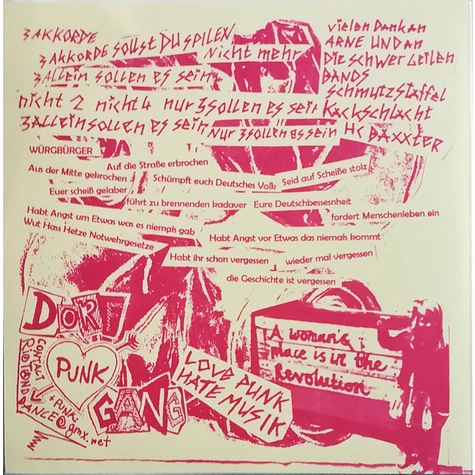 3 AKKORDE
3 AKKORDE SOLLST DU SPILEN
Nicht mehr
3 Allein sollen es sein
nicht 2 nicht 4 nur 3 sollen es sein
3 Allein sollen es sein
Nur 3 sollen es sein
vielen Dank an
ARNE UND AN
Die schwer Geilen
BANDS
Schmutzstaffel
Kackschlacht
HC BAXXTER
WÜRGBÜRGER
Auf die Straße erbrochen
Aus der Mitte gekrochen
Schümpft euch Deutsches Volk
Seid auf Scheiße stolz
Euer scheiß gelaber
führt zu brennenden kadaver
Eure Deutschbessenheit
fordert Menschenleben ein
Habt Angst um Etwas was es niemals gab
Wut Hass Hetze Notwehrgesetze
Habt Angst vor Etwas das niemals kommt
Habt ihr schon vergessen
wieder mal vergessen
die Geschichte ist vergessen
DORF
PUNK
GANG
CONTACT
+ PUNK
@gmx.net
LOVE PUNK
HATE MUSIK
A woman's
place is in the
Revolution